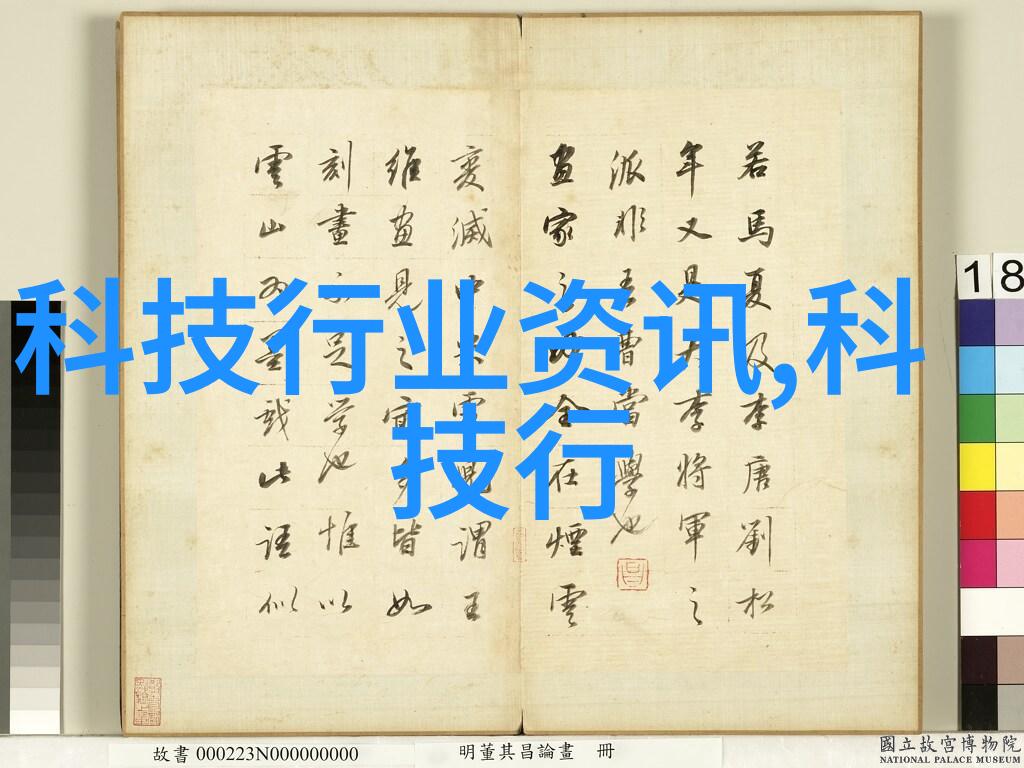 科技行业资讯,科
技行
若馬夏及李唐劉松
年又是大李將軍之
派非吾曹當學也
畫家之妙全在煙雲
變滅中米謂王
維畫見之皆如
刻畫不足學也惟以
雲山為墨戲此語似
18
故書 000223N000000000
明董其昌論畫 冊
國立故宮博物院
NATIONAL PALACE MUSEUM